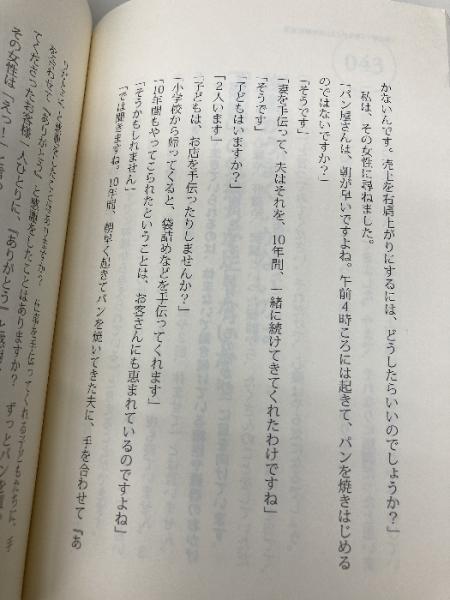 かないんです。売上を右肩上がりにするには、どうしたらいいのでしょうか？」
私は、その女性に尋ねました。
「パン屋さんは、朝が早いですよね。午前４時ころには起きて、パンを焼きはじめる
のではないですか？」
「そうです」
「妻を手伝って、夫はそれを、10年間、一緒に続けてきてくれたわけですね」
「そうです」
「子どもはいますか？」
「２人います」
「子どもは、お店を手伝ったりしませんか？」
「小学校から帰ってくると、袋詰めなどを手伝ってくれます」
「10年間もやってこられたということは、お客さんにも恵まれているのですよね」
「そうかもしれません」
「では聞きますね。10年間、朝早く起きてパンを焼いてきた夫に、手を合わせて『あ
と感謝をしたことはありますか？ 仕事を手伝ってくれる子どもたちに、手
を合わせて『ありがとう』と感謝をしたことはありますか？ ずっとパンを買っ
てくださったお客様一人ひとりに、『ありがとう』と感謝
その女性は「えっ！」と言